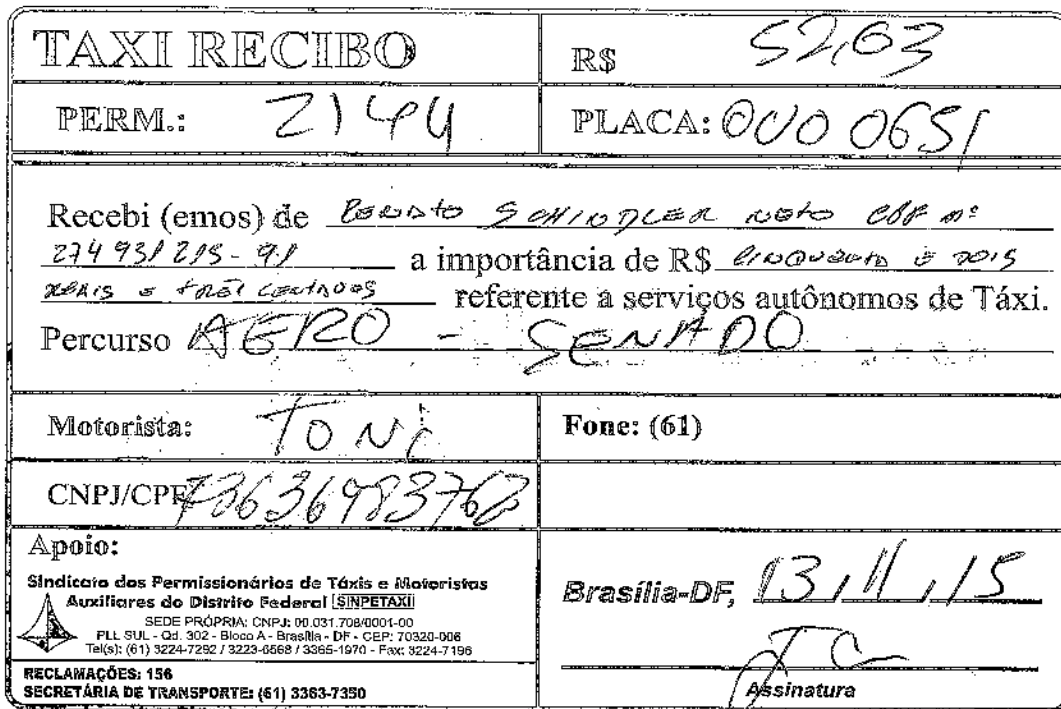 TAXI RECIBO
R$ 52,63
PERM.: 2144
PLACA: OVO 0651
Recebi (emos) de RENATO SCHINDLER NETO CPF nº
274 931 215-91 a importância de R$ CINQUENTA E DOIS
REAIS E TRÊS CENTAVOS referente a serviços autônomos de Táxi.
Percurso AERO - SENADO
Motorista: TONI
Fone: (61)
CNPJ/CPF
Apoio:
Sindicato dos Permissionários de Táxis e Motoristas
Auxiliares do Distrito Federal SINPETAXI
SEDE PRÓPRIA: CNPJ: 00.031.708/0001-00
PLL SUL - Qd. 302 - Bloco A - Brasília - DF - CEP: 70320-006
Tel(s): (61) 3224-7292 / 3223-6568 / 3365-1970 - Fax: 3224-7196
RECLAMAÇÕES: 156
SECRETÁRIA DE TRANSPORTE: (61) 3363-7350
Brasília-DF, 13 / 11 / 15
Assinatura